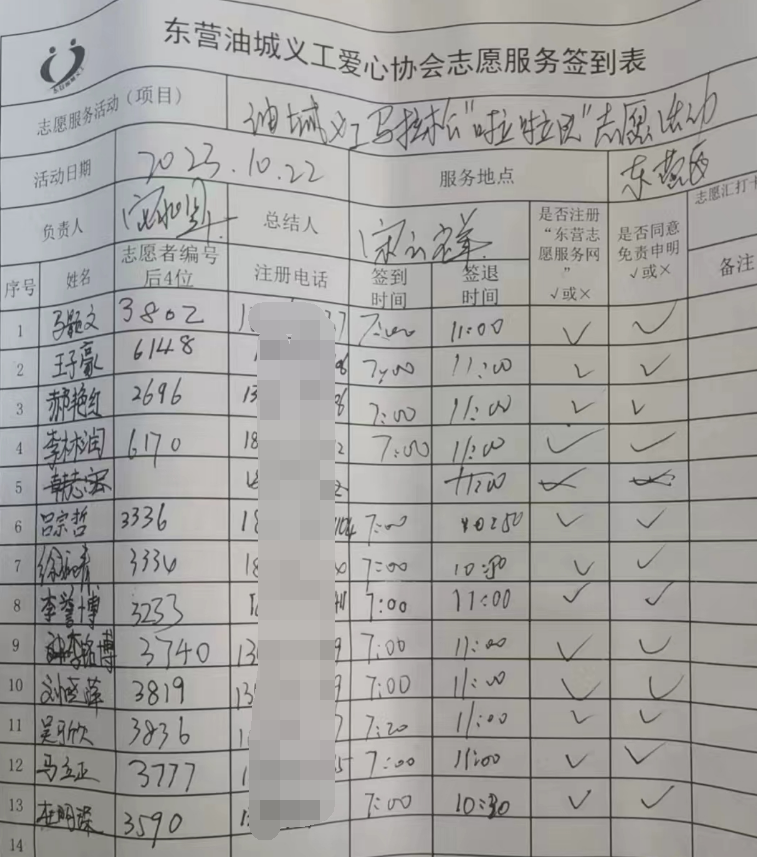 东营油城义工爱心协会志愿服务签到表
志愿服务活动（项目） 油城义工马拉松"啦啦队"志愿活动
活动日期 2023.10.22 服务地点 东营区
志愿汇打卡
负责人 总结人
序号 姓名 志愿者编号后4位 注册电话 签到时间 签退时间 是否注册“东营志愿服务网” √或× 是否同意免责申明 √或× 备注
1 文 3802 7:00 11:00 ✓ ✓
2 王子豪 6148 7:00 11:00 ✓ ✓
3 郝艳红 2696 13 7:00 11:00 ✓ ✓
4 李林润 6170 18 7:00 11:00 ✓ ✓
5 韩志宏 18 11:00
6 吕宗哲 3336 18 7:00 10:50 ✓ ✓
7 徐 3334 18 7:00 10:50 ✓ ✓
8 李誉博 3233 7:00 11:00 ✓ ✓
9 李铭博 3740 13 7:00 11:00 ✓ ✓
10 刘晓萍 3819 13 7:00 11:00 ✓ ✓
11 吴 3836 7:20 11:00 ✓ ✓
12 马立正 3777 7:00 11:00 ✓ ✓
13 3590 7:00 10:30 ✓ ✓
14